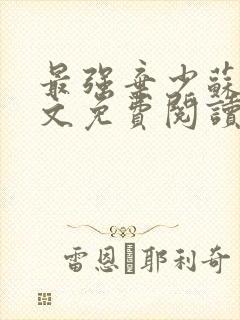 最强弃少蘇
文免費閱讀
雷恩·耶利奇